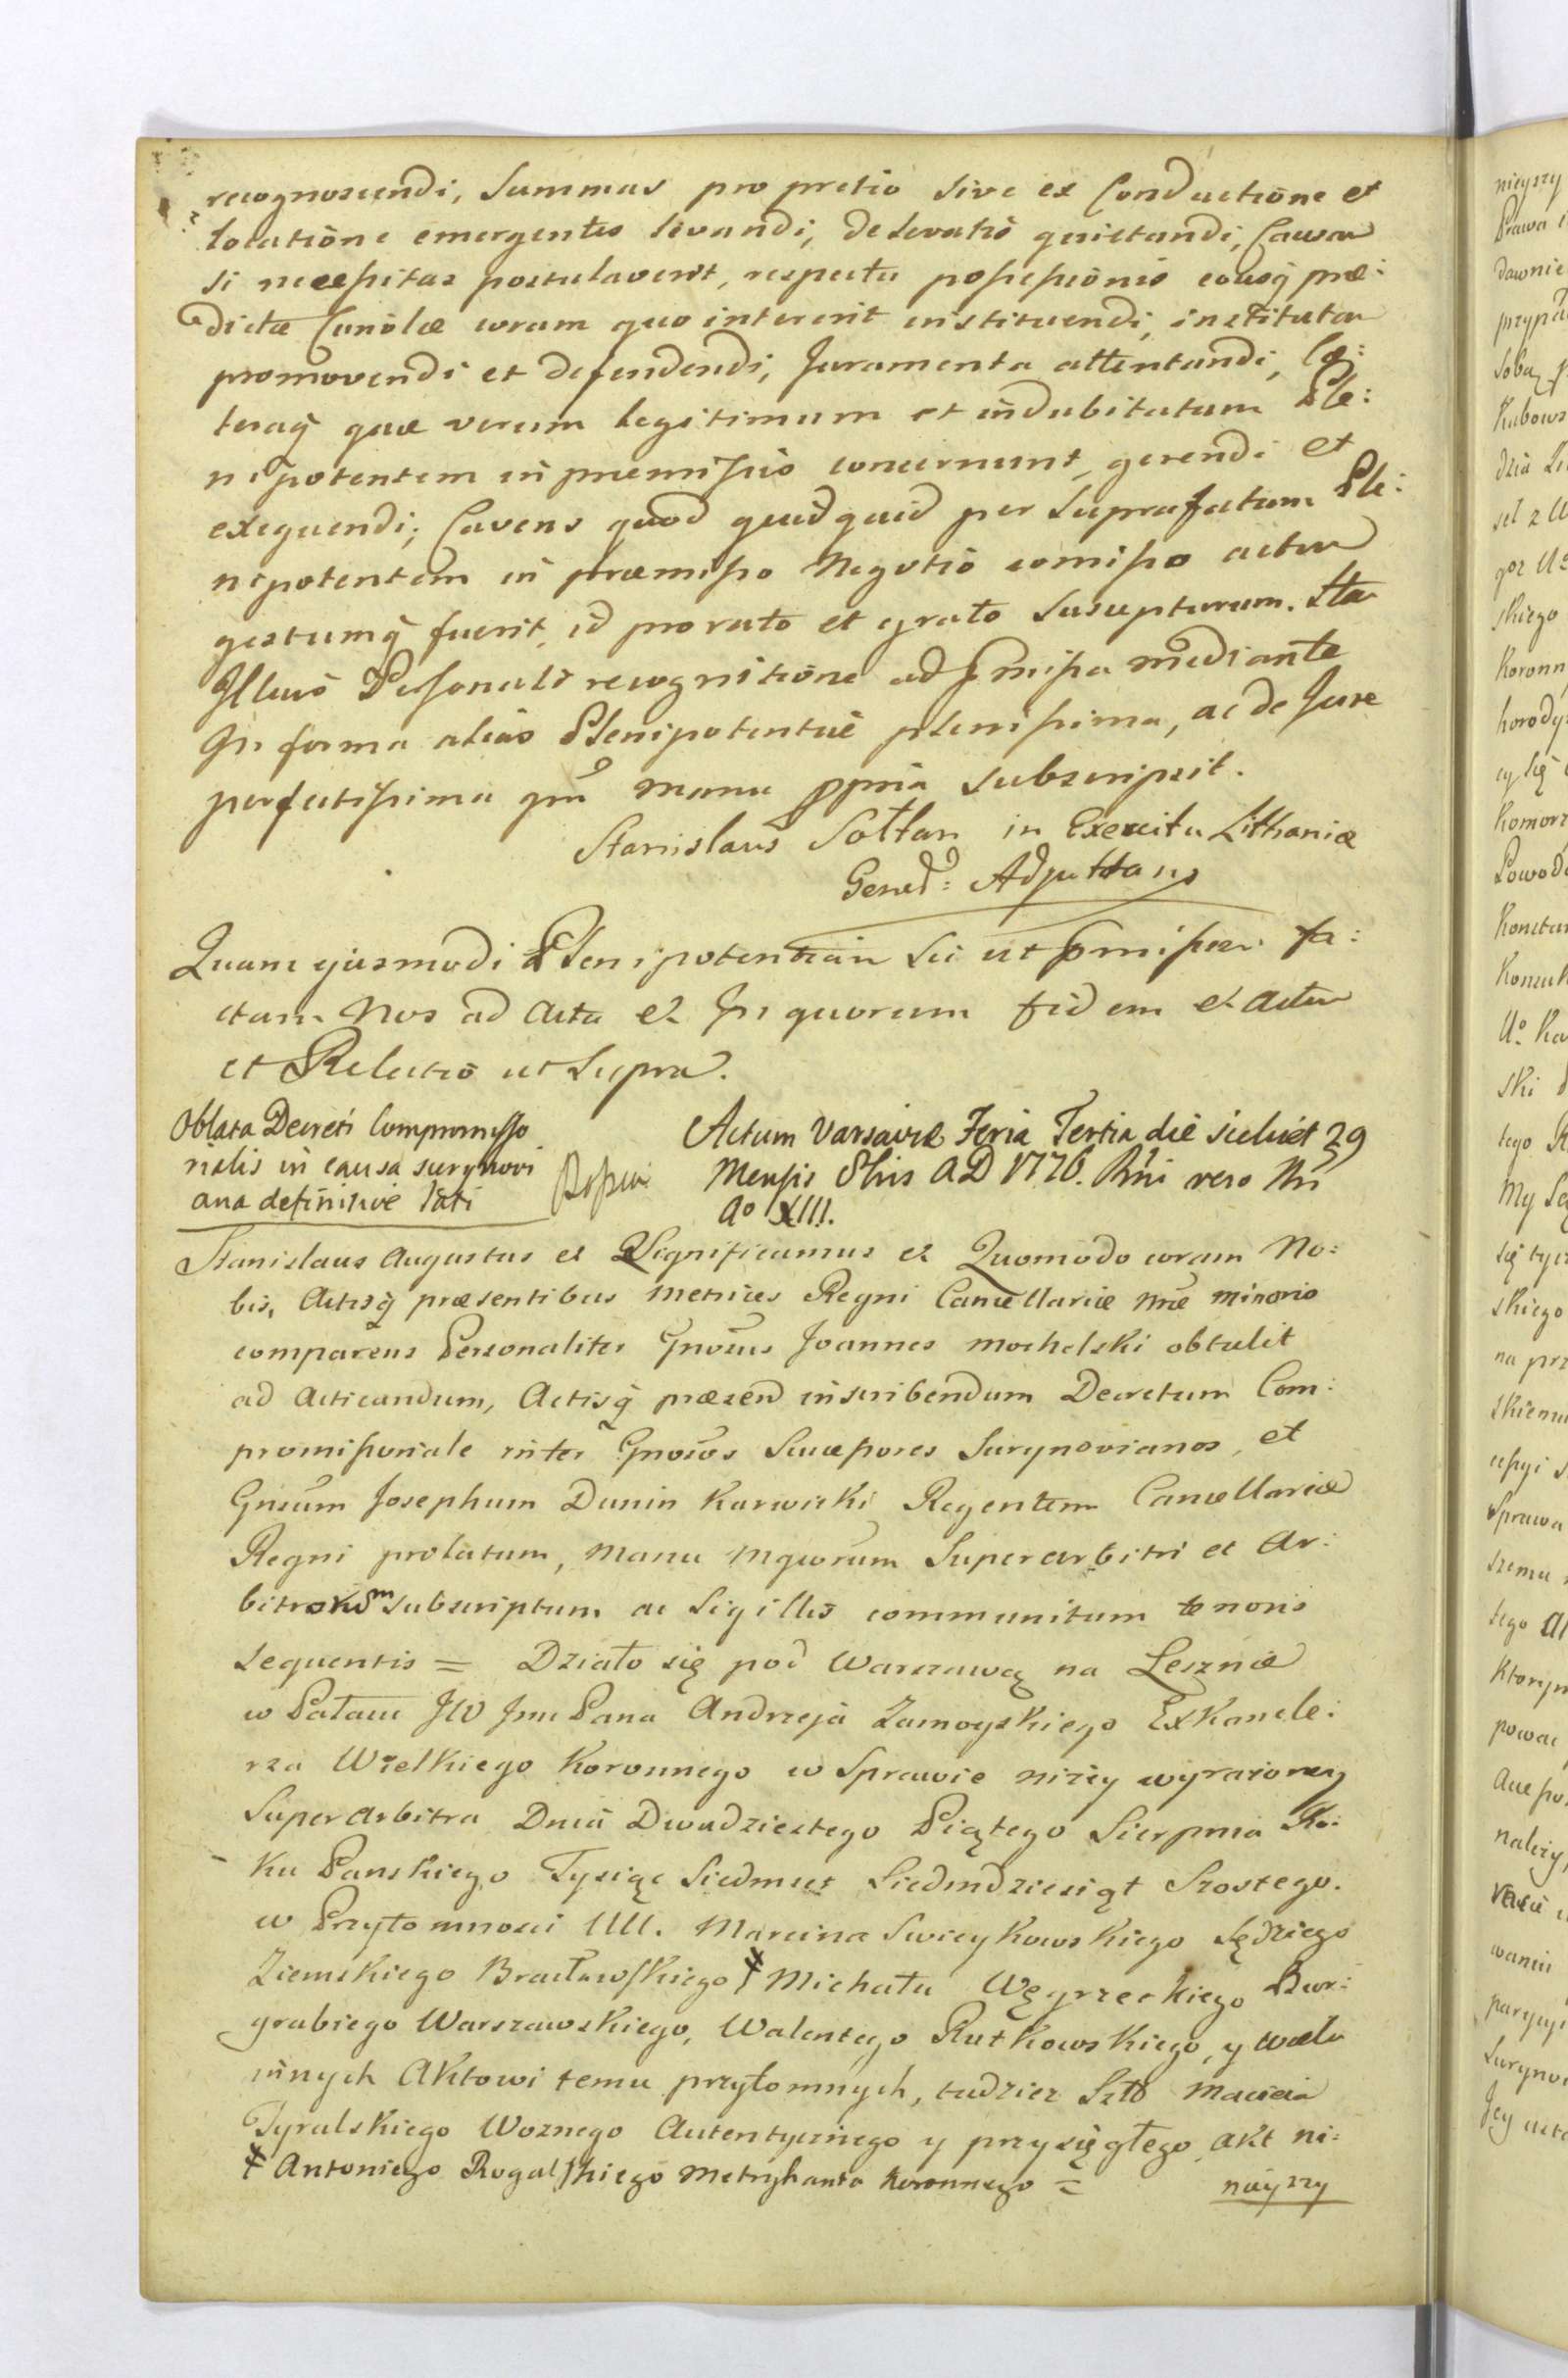 recognoscendi, Summas pro pretio sive ex Conductione et
locatione emergentes levandi, de levatis quietandi, Causas
si necessitas postulaverit, respectu possessionis ejusq præ:
dictæ Curiolæ coram quo intererit instituendi, institutas
promovendi et defendendi, Juramenta attentandi, Cæ:
teraq quæ verum legitimum et indubitatum Ple:
nipotentem in præmissis concernunt, gerendi et
exequendi; Cavens quod quidquid per Suprafatum Ple:
nipotentem in præmisso Negotio comisso actu
gestumq fuerit, id pro rato et grato suscepturum. Sta
Illius Personali recognitione ad pmissa mediante
In forma alias Plenipotentiæ plenissima, ac de Jure
perfectissima pns manu ppria subscripsit.
Stanislaus Sołtan in Exercitu Lithaniæ
General: Adjuttans
Quam ejusmodi Plenipotentiam sic ut pmissum fa:
ctam Nos ad Acta & In quorum fidem & Actu
et Relatio ut Supra.
Oblata Decreti Compromisso
rialis in causa Surynovi
ana definitive lati
Actum Varsaviæ Feria Tertia die scilicet 29
Mensis 8bris AD 1776. Rni vero Nri
Ao XIII.
Stanislaus Augustus & Significamus & Quomodo coram No:
bis, Actisq præsentibus Metrices Regni Cancellariæ Nræ minoris
comparens Personaliter Gnosus Joannes Mochelski obtulit
ad Acticandum, Actisq præsend inscribendum Decretum Com:
promissoriale inter Gnosos Successores Surynovianos, et
Gnsum Josephum Dunin Karwicki Regentem Cancellariæ
Regni prolatum, Manu Mgcorum Superarbitri et Ar:
bitrorum subscriptum ac Sigillis communitum tenoris
sequentis = Działo się pod Warszawą na Lesznie
w Pałacu JW Jmi Pana Andrzeja Zamoyskiego ExKancle:
rza Wielkiego Koronnego w Sprawie niżey wyrażoney
Superarbitra Dnia Dwudziestego Piątego Sierpnia Ro:
ku Panskiego Tysiąc Siedmset Siedmdziesiąt Szostego.
w Przytomnosci UU. Marcina Swieykowskiego Sędziego
Ziemskiego Bracławskiego ǂ Michała Węgrzeckiego Bur:
grabiego Warszawskiego, Walentego Rutkowskiego, y wielu
innych Aktowi temu przytomnych, tudzież Szło Macieia
Tyralskiego Woznego Autentycznego y przysięgłego, Akt ni:
ǂ Antoniego Rogalskiego Metrykanta Koronnego =
nieyszy